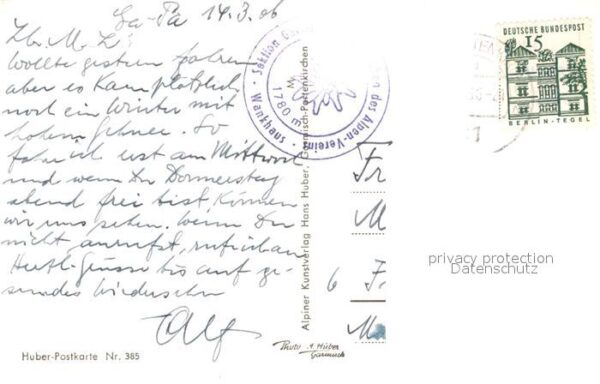 Ga-Pa 14.3.66
Wollte gestern fahren
aber es kam plötzlich
noch ein Winter mit
hohem Schnee. So
fahr ich erst am Mittwoch
und wenn Du Donnerstag
abend frei bist, können
wir uns sehen. Wenn Du
nicht anrufst, ruf ich an
Herzl. Grüsse bis auf ge-
sundes Wiedersehn
Alf
Huber-Postkarte Nr. 385
Sektion
des Alpen-Vereins
Waxghaus
1780 m
Alpiner Kunstverlag Hans Huber, Garmisch-Partenkirchen
Photo H. Huber
Garmisch
DEUTSCHE BUNDESPOST
15
BERLIN-TEGEL
Fr
M
6 F
privacy protection
Datenschutz